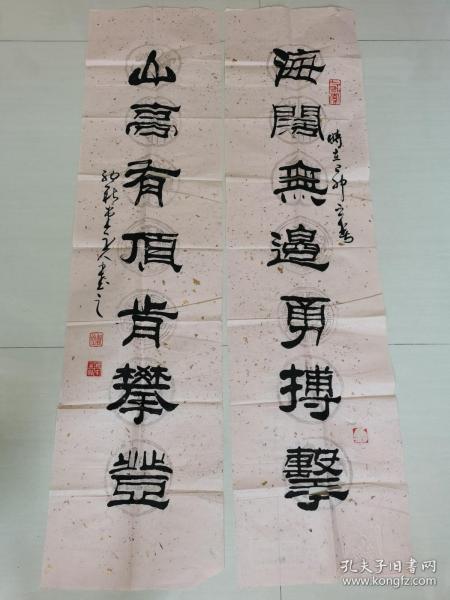 海闊無邊勇搏擊
時在己卯之春
山高有頂肯攀登
書之
孔夫子旧书网
www.kongfz.com